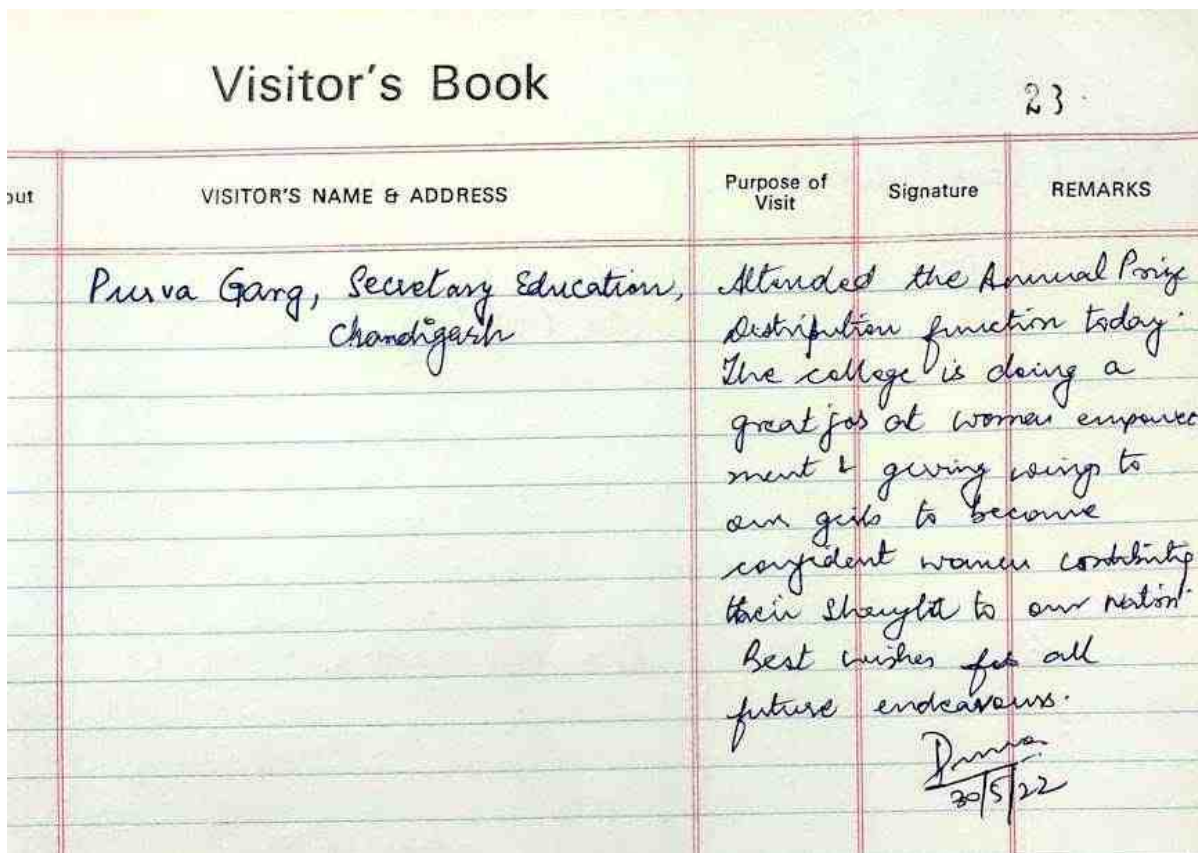 Visitor's Book
23.
out
VISITOR'S NAME & ADDRESS
Purpose of
Visit
Signature
REMARKS
Purva Garg, Secretary Education,
Chandigarh
Attended the Annual Prize
Distribution function today.
The college is doing a
great job at women empower
ment & giving wings to
our girls to become
confident women contributing
their to our Nation.
Best wishes for all
future endeavours.
Purva
30/5/22